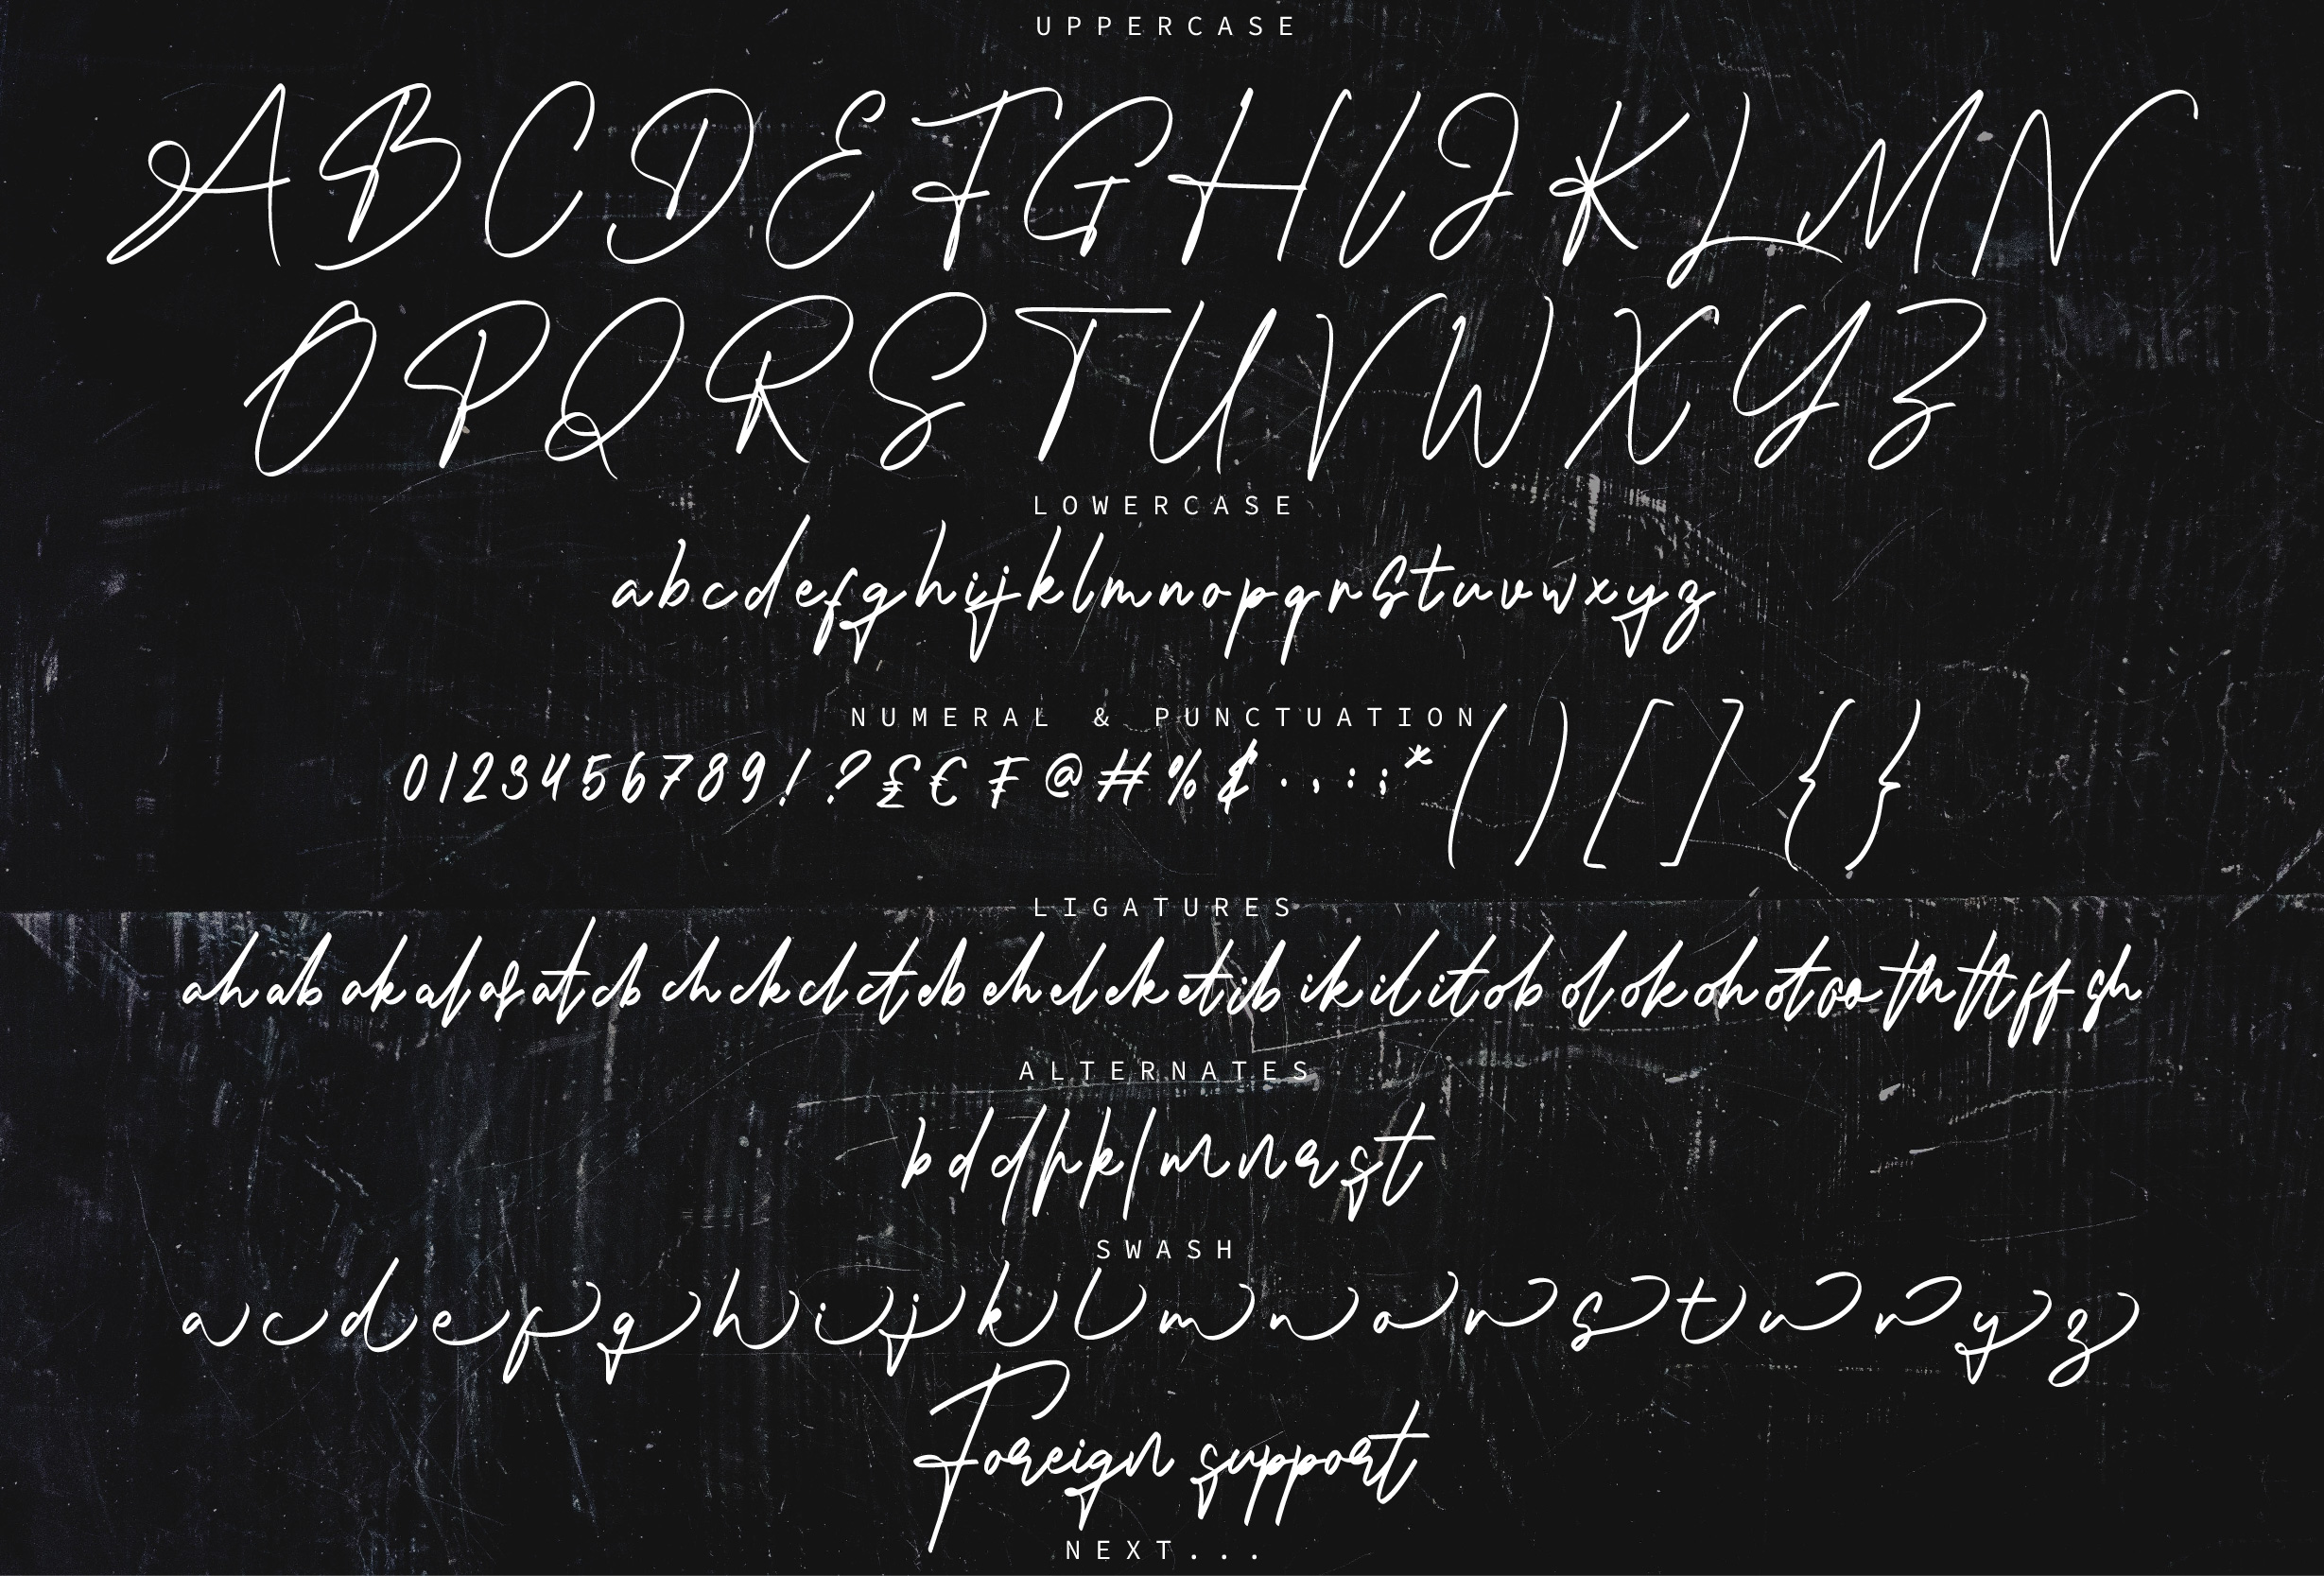 UPPERCASE
A B C D E F G H I J K L M N
O P Q R S T U V W X Y Z
LOWERCASE
a b c d e f g h i j k l m n o p q r s t u v w x y z
NUMERAL & PUNCTUATION
0 1 2 3 4 5 6 7 8 9 ! ? £ € ₮ @ # % & . , : ; * ( ) [ ] { }
LIGATURES
ah ab ak al af at cb ch ck cl ct eb eh el ek et ib ik il it ob ol ok oh ot oo th tt ff sh
ALTERNATES
b d d h k l m n r s t
SWASH
a c d e f g h i j k l m n o r s t u v y z
Foreign support
NEXT...